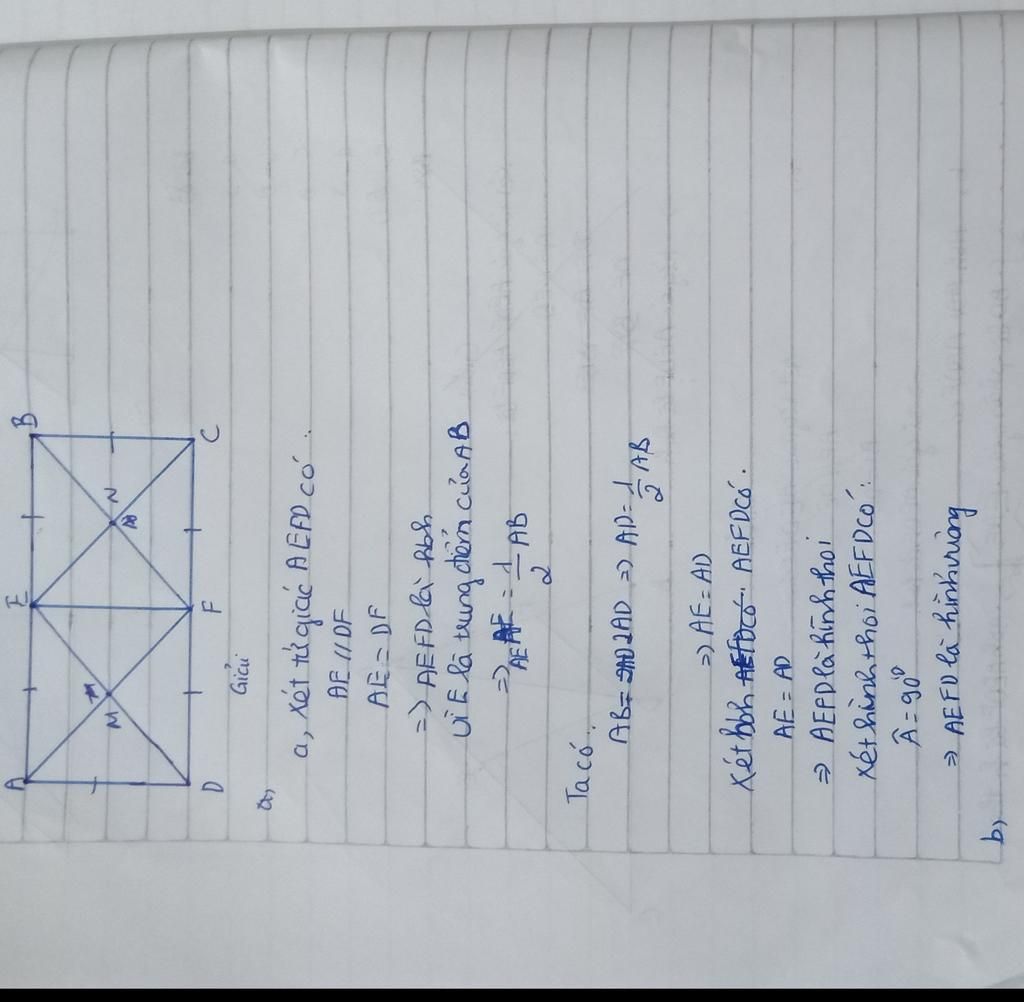 A E B
M N
D F C
Giải
a,
a, xét tứ giác AEFD có:
AE // DF
AE = DF
=> AEFD là hbh
vì E là trung điểm của AB
=> AE = 1/2 AB
Ta có:
AB = 2AD => AD = 1/2 AB
=> AE = AD
Xét hbh AEFD có:
AE = AD
=> AEFD là hình thoi
xét hình thoi AEFD có:
Â = 90°
=> AEFD là hình vuông
b,